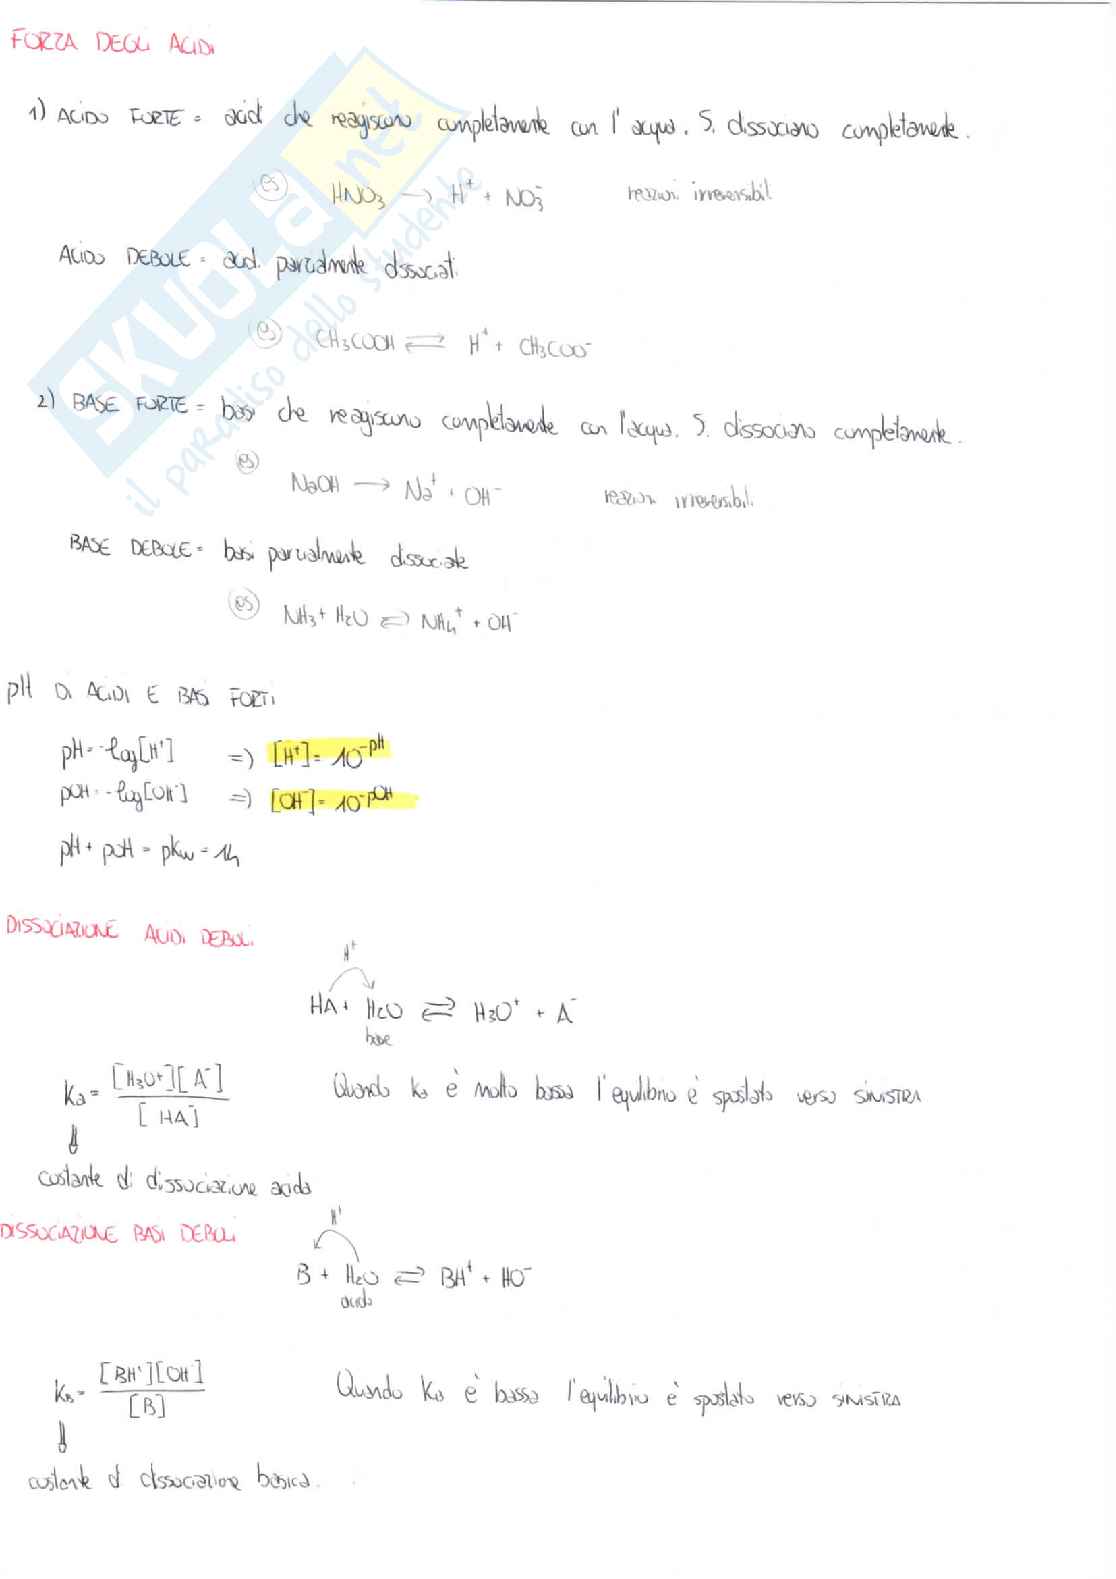 FORZA DEGLI ACIDI
1) ACIDO FORTE = acidi che reagiscono completamente con l'acqua. Si dissociano completamente.
es HNO₃ → H⁺ + NO₃⁻ reazioni irreversibili
ACIDO DEBOLE = acidi parzialmente dissociati
es CH₃COOH ⇌ H⁺ + CH₃COO⁻
2) BASE FORTE = basi che reagiscono completamente con l'acqua. Si dissociano completamente.
es NaOH → Na⁺ + OH⁻ reazioni irreversibili.
BASE DEBOLE = basi parzialmente dissociate
es NH₃ + H₂O ⇌ NH₄⁺ + OH⁻
pH DI ACIDI E BASI FORTI
pH = -log[H⁺] => [H⁺] = 10^-pH
pOH = -log[OH⁻] => [OH⁻] = 10^-pOH
pH + pOH = pKw = 14
DISSOCIAZIONE ACIDI DEBOLI
H⁺
HA + H₂O ⇌ H₃O⁺ + A⁻
base
Ka = [H₃O⁺][A⁻] / [HA] Quando Ka è molto bassa l'equilibrio è spostato verso SINISTRA
⇓
costante di dissociazione acida
DISSOCIAZIONE BASI DEBOLI
H⁺
B + H₂O ⇌ BH⁺ + HO⁻
acido
KB = [BH⁺][OH⁻] / [B] Quando KB è bassa l'equilibrio è spostato verso SINISTRA
⇓
costante di dissociazione basica.
SKUOLA.net
il paradiso dello studente